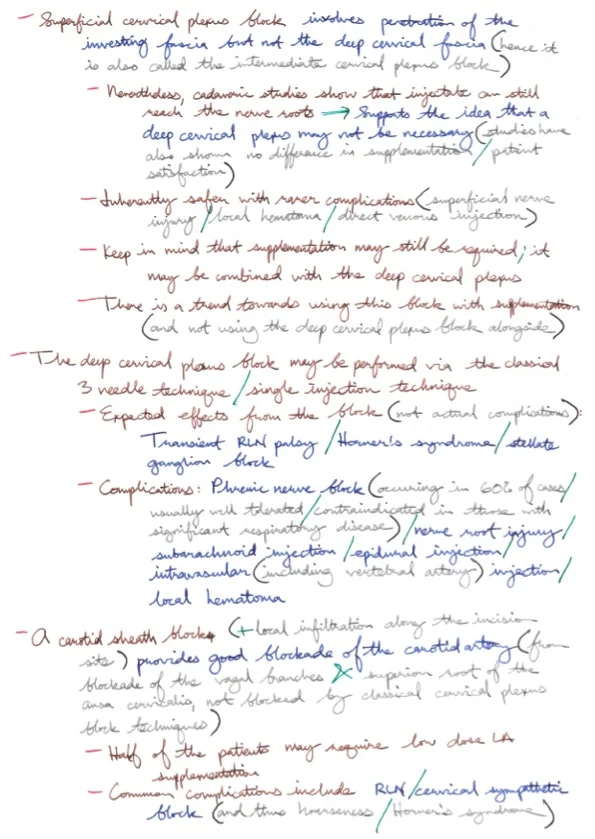 - Superficial cervical plexus block involves penetration of the
investing fascia but not the deep cervical fascia (hence it
is also called the intermediate cervical plexus block)
- Nevertheless, cadaveric studies show that injectate can still
reach the nerve roots → Supports the idea that a
deep cervical plexus may not be necessary (studies have
also shown no difference in supplementation / patient
satisfaction)
- Inherently safer with rarer complications (superficial nerve
injury / local hematoma / direct venous injection)
- Keep in mind that supplementation may still be required; it
may be combined with the deep cervical plexus
- There is a trend towards using this block with supplementation
(and not using the deep cervical plexus block alongside)
- The deep cervical plexus block may be performed via the classical
3 needle technique / single injection technique
- Expected effects from the block (not actual complications):
Transient RLN palsy / Horner's syndrome / stellate
ganglion block
- Complications: Phrenic nerve block (occuring in 60% of cases /
usually well tolerated / contraindicated in those with
significant respiratory disease) / nerve root injury /
subarachnoid injection / epidural injection /
intravascular (including vertebral artery) injection /
local hematoma
- A carotid sheath block (+ local infiltration along the incision
site) provides good blockade of the carotid artery (from
blockade of the vagal branches & superior root of the
ansa cervicalis, not blocked by classical cervical plexus
block techniques)
- Half of the patients may require low dose LA
supplementation
- Common complications include RLN / cervical sympathetic
block (and thus hoarseness / Horner's syndrome)